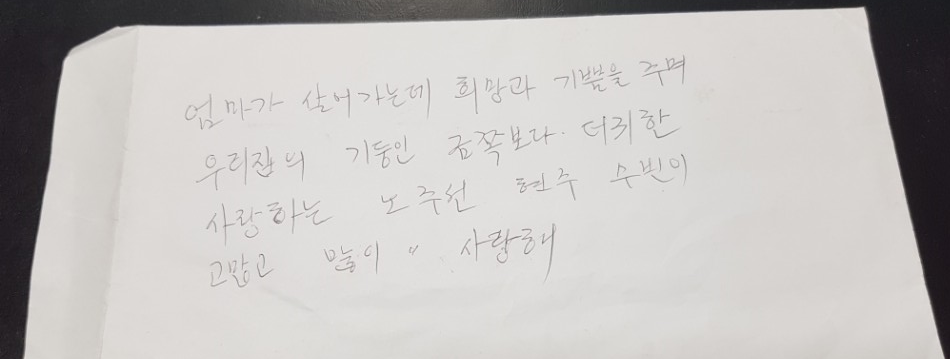 엄마가 살아가는데 희망과 기쁨을 주며
우리집의 기둥인 금쪽보다 더귀한
사랑하는 노주선 현주 수빈이
고맙고 많이 〃 사랑해